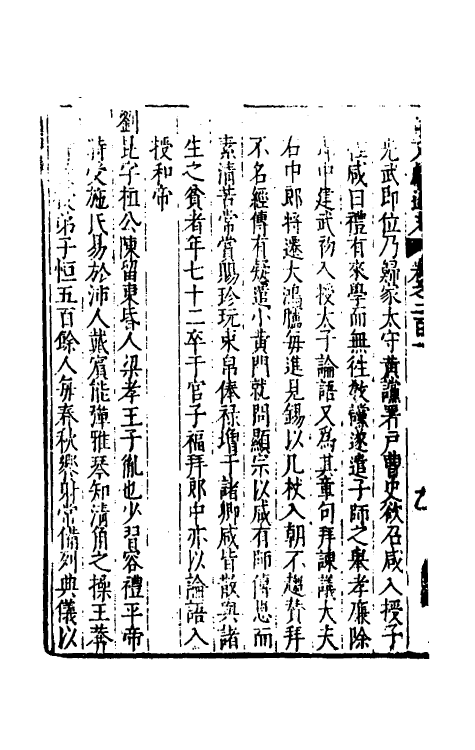 光武即位乃歸家太守黃讜署戸曹史欲召咸入授子
咸曰禮有來學而無往教讜遂遣子師之舉孝廉除
中建武初入授太子論語又為其章句拜諫議大夫
右中郎將遷大鴻臚每進見錫以几杖入朝不趨贊拜
不名經傳有疑遣小黃門就問顯宗以咸有師傅恩而
素清苦常賞賜珍玩束帛俸祿增于諸卿咸皆散與諸
生之貧者年七十二卒于官子福拜郎中亦以論語入
授和帝
劉 字桓公陳留東昏人梁孝王子胤也少習容禮平帝
時受施氏易於沛人戴賓能彈雅琴知清角之操王莽
弟子恒五百餘人每春秋饗射常備列典儀以